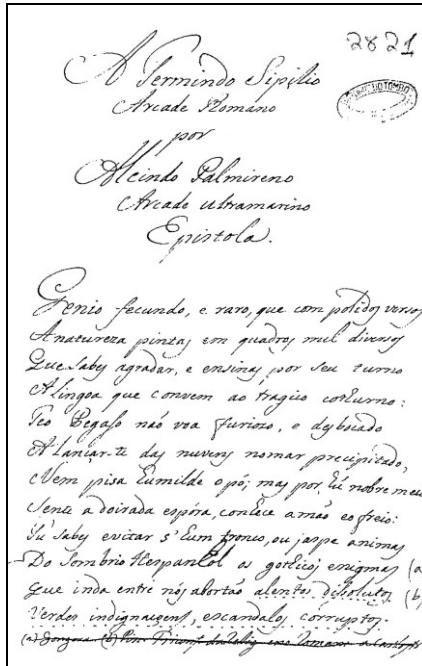 2821
A Termindo Sipilio
Arcade Romano
por
Alcindo Palmireno
Arcade ultramarino
Epistola.
TOMBO
Genio fecundo, e raro, que com polidos versos
A natureza pintas em quadros mil diversos
Que sabes agradar, e ensinas por seu turno
A lingoa que convem ao tragico coturno:
Teo Pegaso não voa furioso, e desbocado
A lançar-te das nuvens no mar precipitado,
Nem pisa humilde o pó; mas por hũ nobre meio
Sente a doirada espóra, conhece a mão e o freio:
Tu sabes evitar s'hum tronco, ou jaspe animas
Do Sombrio Hespanhol os gothicos enigmas (a
Que inda entre nós abortão alentos dissolutos (b)
Verdes indignaçoens, escandalos corruptos.
(a) Gongora (b)